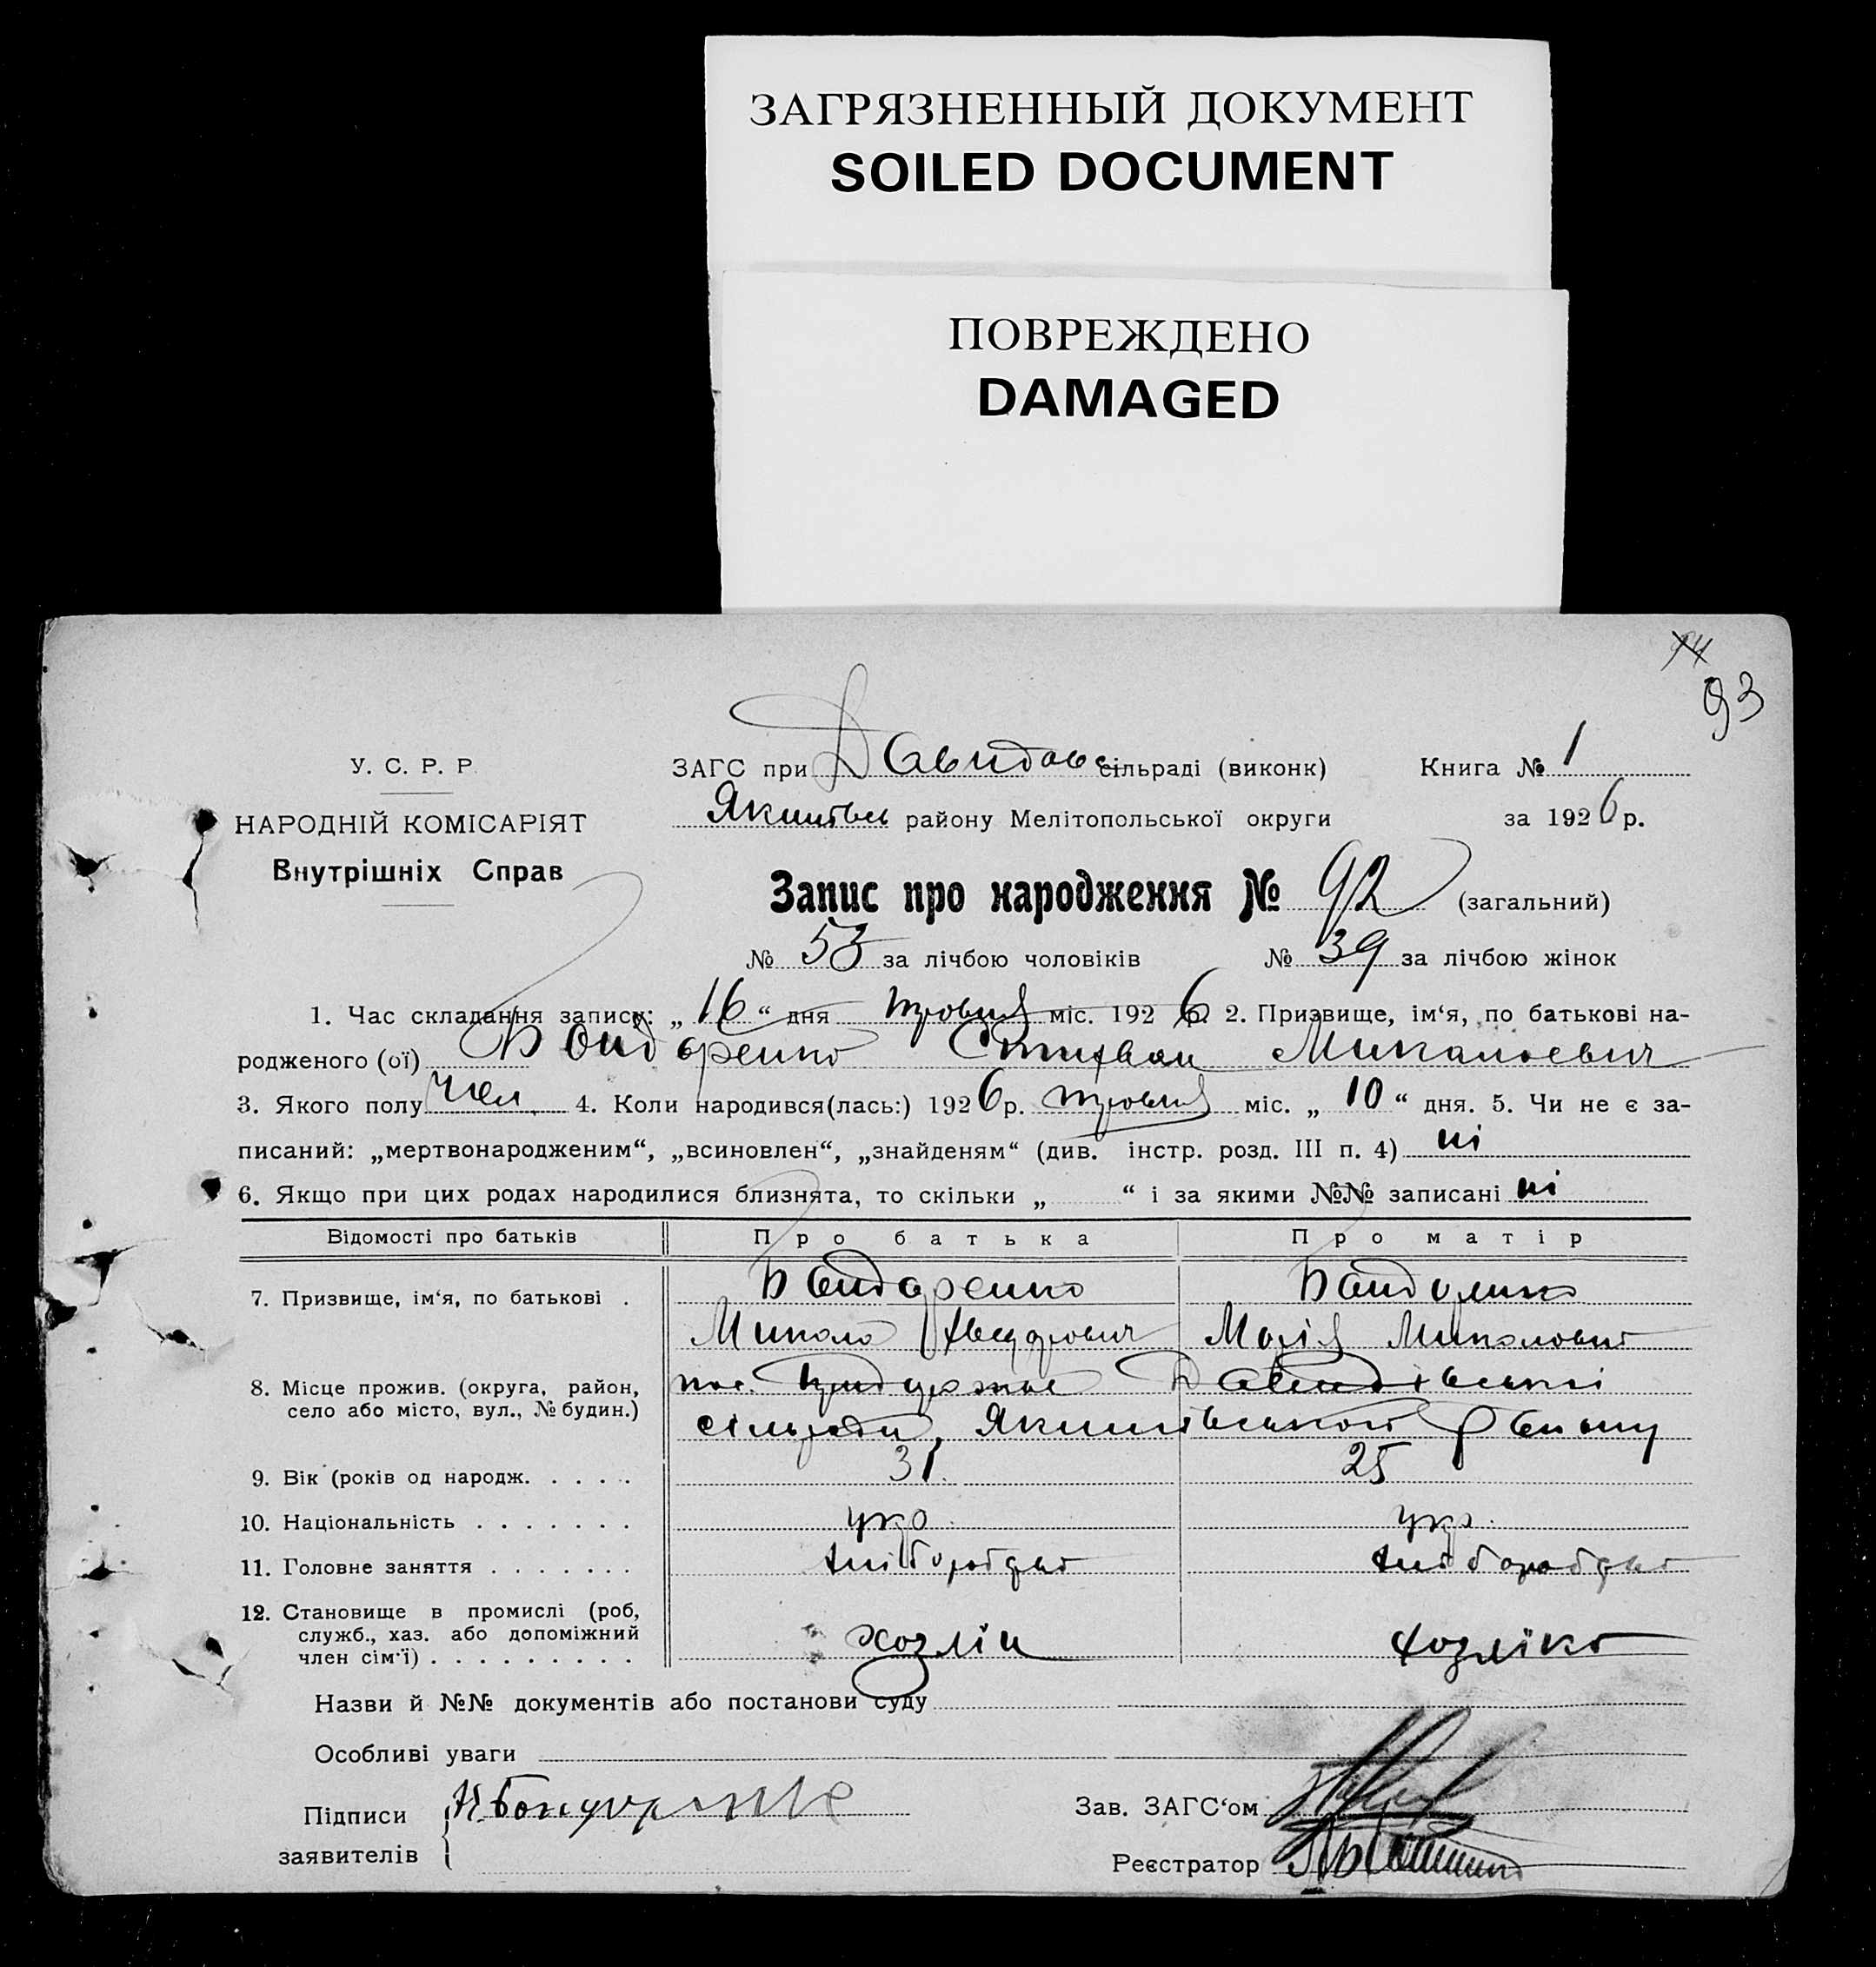 ЗАГРЯЗНЕННЫЙ ДОКУМЕНТ
SOILED DOCUMENT
ПОВРЕЖДЕНО
DAMAGED
93
У. С. Р. Р.
НАРОДНІЙ КОМІСАРІЯТ
Внутрішніх Справ
ЗАГС при Давидовс сільраді (виконк) Книга № 1
району Мелітопольської округи за 1926 р.
Запис про народження № 92 (загальний)
№ 53 за лічбою чоловіків № 39 за лічбою жінок
1. Час складання запису: „16“ дня травня міс. 1926 р. 2. Призвище, ім‘я, по батькові на-
родженого (ої) Бондаренко Стифан Миколаевич
3. Якого полу чол 4. Коли народився(лась:) 1926 р. травня міс. „10“ дня. 5. Чи не є за-
писаний: „мертвонародженим“, „всиновлен“, „знайденям“ (див. інстр. розд. III п. 4) ні
6. Якщо при цих родах народилися близнята, то скільки „ “ і за якими №№ записані ні
Відомості про батьків Про батька Про матір
7. Призвище, ім‘я, по батькові . Бондаренко Бондаренко
Микола Марія
8. Місце прожив. (округа, район, пос. Давидівської
село або місто, вул., № будин.) сільради, Якимівського
9. Вік (років од народж. . . . . 31 25
10. Національність . . . . . . . укр. укр.
11. Головне заняття . . . . . . . хліборобство хліборобство
12. Становище в промислі (роб,
служб., хаз. або допоміжний хозяін хозяіка
член сім‘ї) . . . . . . . . .
Назви й №№ документів або постанови суду
Особливі уваги
Підписи Бондаренко Зав. ЗАГС‘ом
заявителів Реєстратор